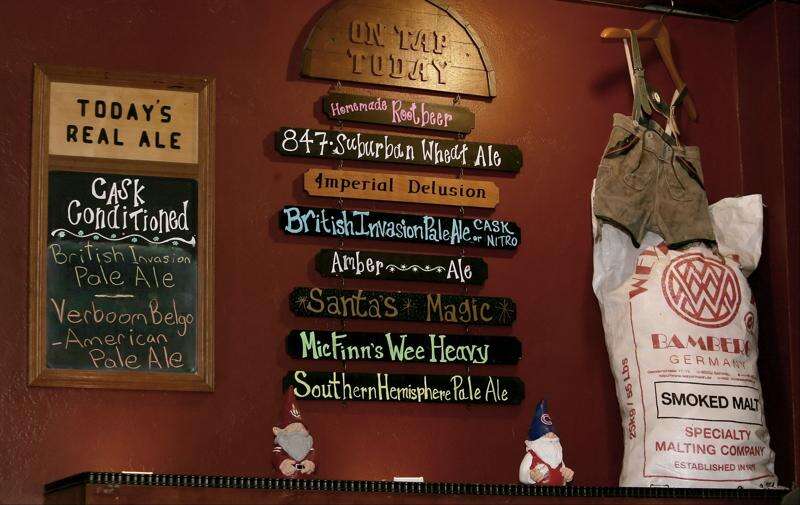 TODAY'S
REAL ALE
CASK
Conditioned
British Invasion
Pale Ale
Verboom Belgo
-American
Pale Ale
ON TAP
TODAY
Homemade Rootbeer
847·Suburban Wheat Ale
Imperial Delusion
British Invasion Pale Ale CASK or NITRO
Amber Ale
Santa's Magic
McFinn's Wee Heavy
Southern Hemisphere Pale Ale
BAMBERG
GERMANY
25kg / 55 Lbs
SMOKED MALT
SPECIALTY
MALTING COMPANY
ESTABLISHED IN